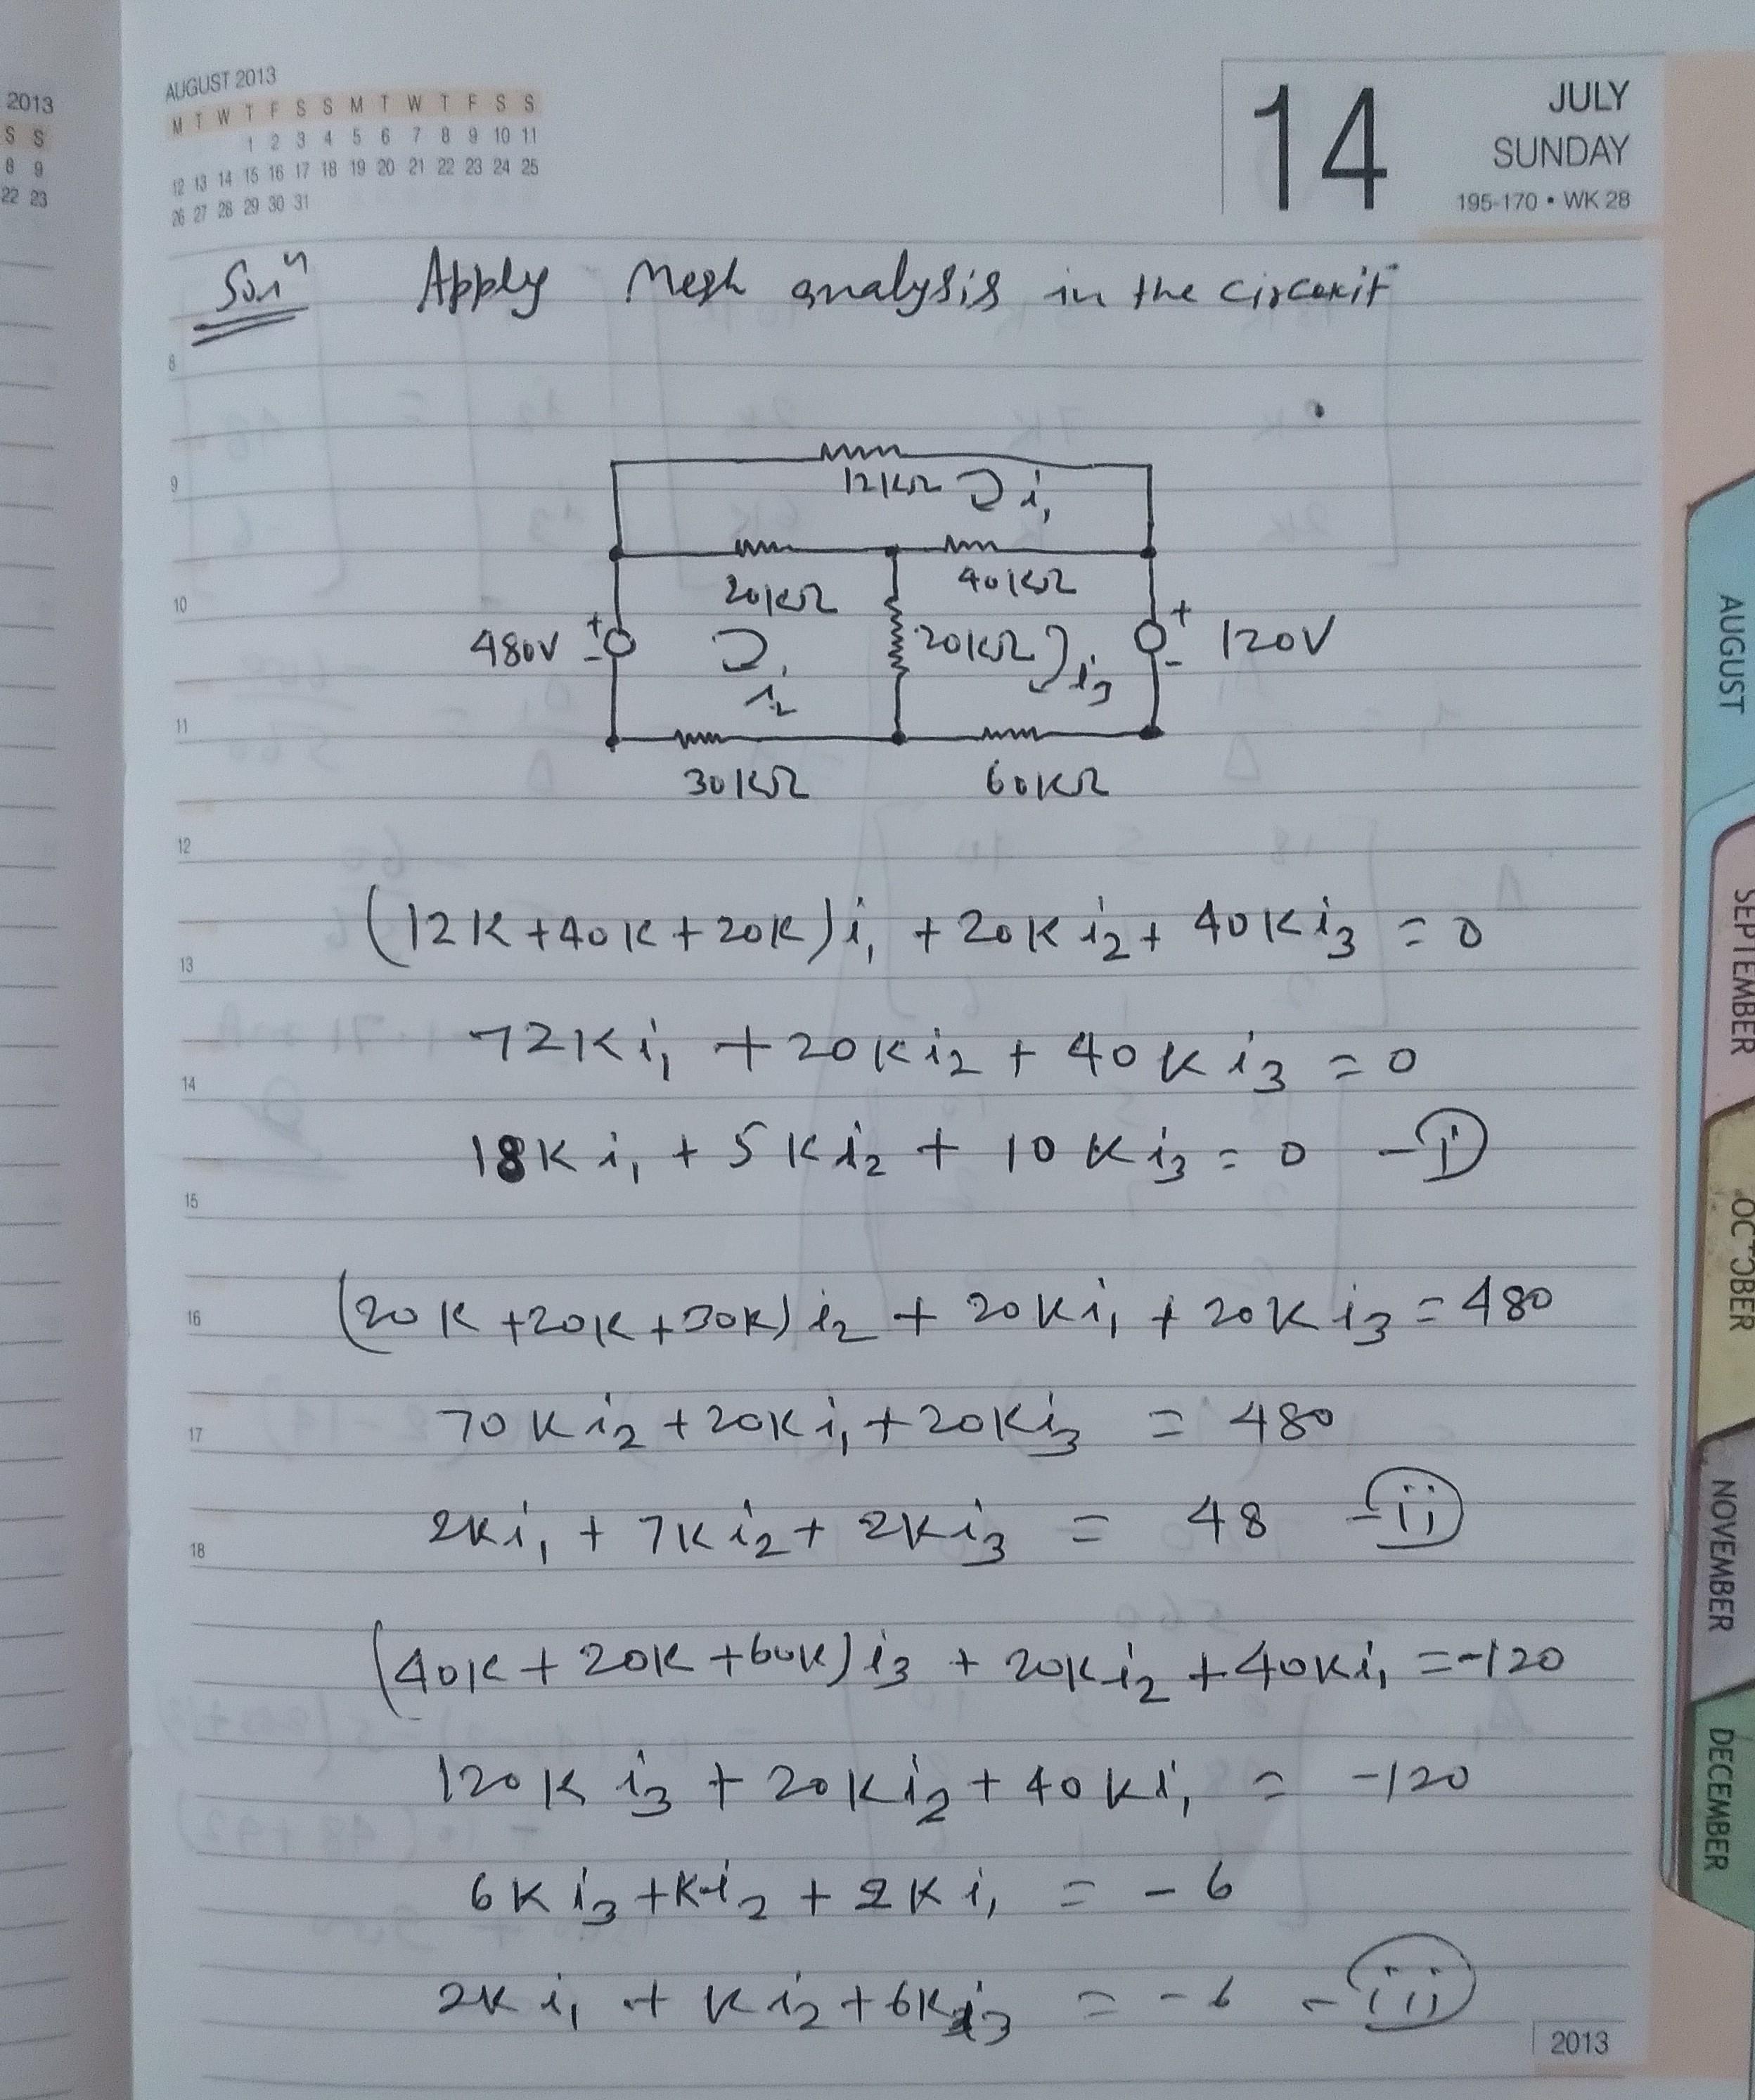 2013
S S
8 9
22 23
AUGUST 2013
M T W T F S S M T W T F S S
1 2 3 4 5 6 7 8 9 10 11
12 13 14 15 16 17 18 19 20 21 22 23 24 25
26 27 28 29 30 31
14
JULY
SUNDAY
195-170 • WK 28
Solⁿ Apply Mesh analysis in the circuit
8
9
10
11
12
13
14
15
16
17
18
12kΩ i₁
20kΩ 40kΩ
480V + - i₂ 20kΩ i₃ + - 120V
30kΩ 60kΩ
(12K+40K+20K)i₁ + 20K i₂ + 40K i₃ = 0
72K i₁ + 20K i₂ + 40K i₃ = 0
18K i₁ + 5K i₂ + 10K i₃ = 0 - (i)
(20K+20K+30K) i₂ + 20K i₁ + 20K i₃ = 480
70K i₂ + 20K i₁ + 20K i₃ = 480
2K i₁ + 7K i₂ + 2K i₃ = 48 - (ii)
(40K + 20K + 60K) i₃ + 20K i₂ + 40K i₁ = -120
120K i₃ + 20K i₂ + 40K i₁ = -120
6K i₃ + K i₂ + 2K i₁ = -6
2K i₁ + K i₂ + 6K i₃ = -6 - (iii)
2013
AUGUST
SEPTEMBER
OCTOBER
NOVEMBER
DECEMBER